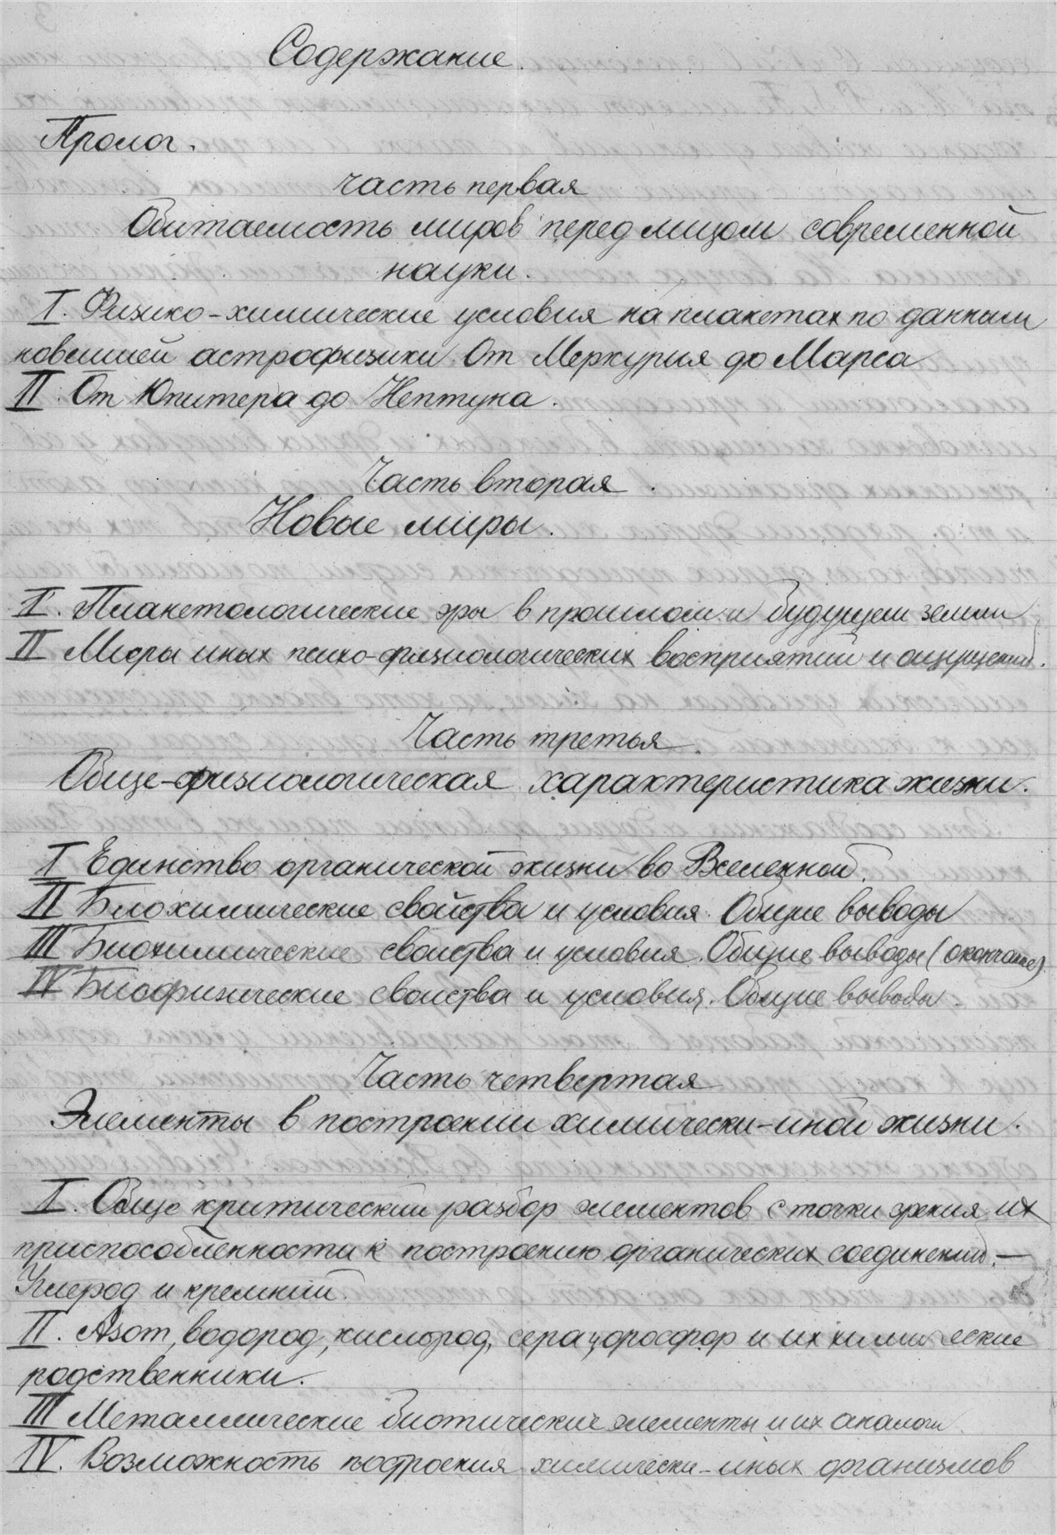 Содержание.
Пролог.
часть первая
Обитаемость миров перед лицом современной
науки.
I. Физико-химические условия на планетах по данным
новейшей астрофизики От Меркурия до Марса
II. От Юпитера до Нептуна.
Часть вторая.
Новые миры.
I. Планетологические эры в прошлом и будущем земли
II Миры иных психо-физиологических восприятий и ощущений.
Часть третья.
Обще-физиологическая характеристика жизни.
I Единство органической жизни во Вселенной.
II Биохимические свойства и условия. Общие выводы
III Биохимические свойства и условия. Общие выводы (окончание)
IV Биофизические свойства и условия. Общие выводы.
Часть четвертая
Элементы в построении химически-иной жизни.
I. Обще критический разбор элементов с точки зрения их
приспособленности к построению органических соединений. —
Углерод и кремний.
II. Азот, водород, кислород, сера, фосфор и их химические
родственники.
III Металлические биотические элементы и их аналоги.
IV. Возможность построения химически-иных организмов